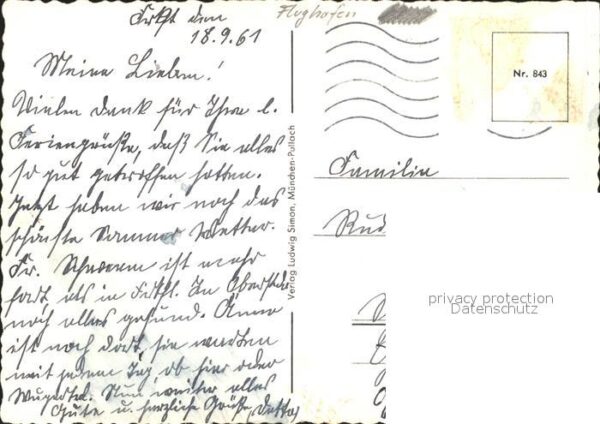 Frkft den
18.9.61
Flughafen
Meine Lieben!
Vielen Dank für Ihre l.
Feriengrüße, daß Sie alles
so gut getroffen hatten.
Jetzt haben wir noch das
schönste Sommer Wetter.
Fr. ist mehr
fort, als in Frkft. In
noch alles gesund. Änne
ist noch dort, sie
mit jedem Tag ob hier oder
Nun weiter alles
Gute u. herzliche Grüße,
Verlag Ludwig Simon, München-Pullach
Nr. 843
Familie
Rud
privacy protection
Datenschutz